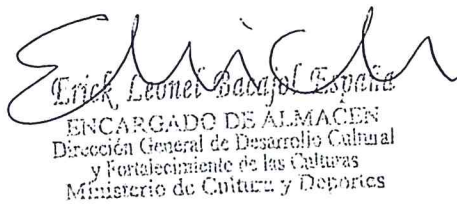 Erick Leonel Bacajol España
ENCARGADO DE ALMACEN
Dirección General de Desarrollo Cultural
y Fortalecimiento de las Culturas
Ministerio de Cultura y Deportes